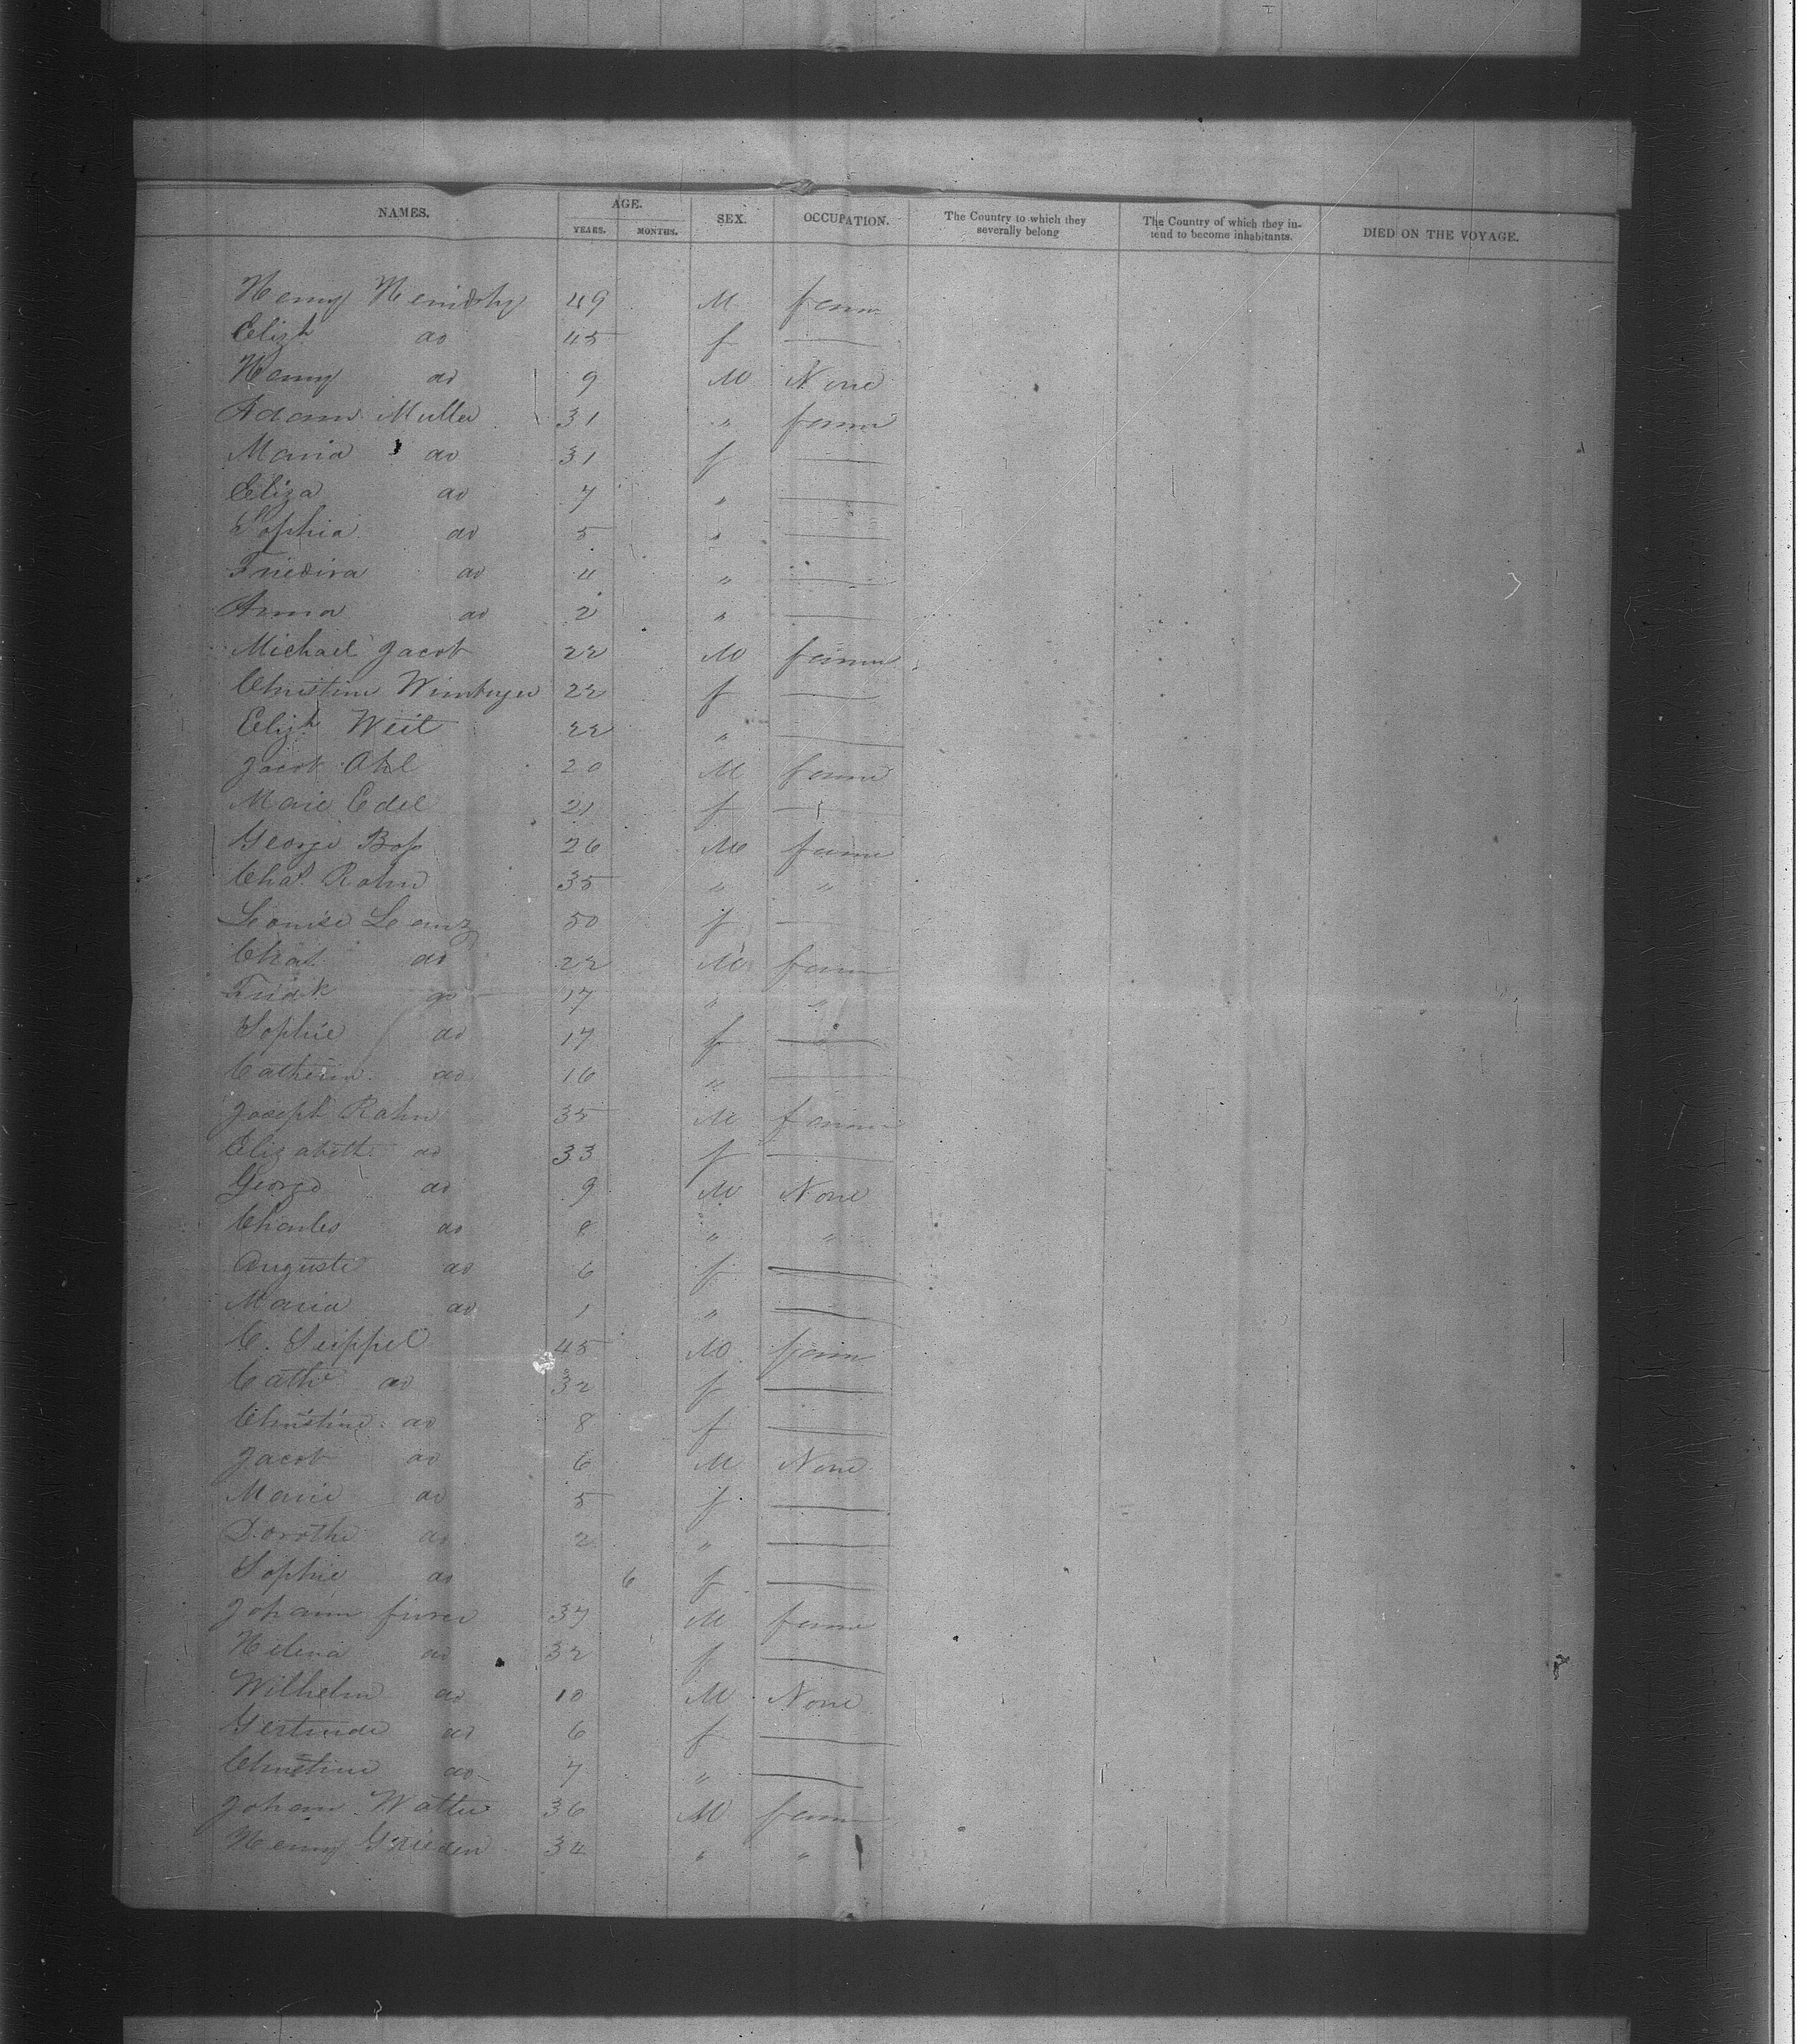 NAMES. AGE. YEARS. MONTHS. SEX. OCCUPATION. The Country to which they severally belong The Country of which they in-tend to become inhabitants. DIED ON THE VOYAGE.
Henry 49 M farm
Elizh do 45 f —
Henry do 9 M None
Adam Muller 31 " farm
Maria do 31 f —
Eliza do 7 " —
Sophia do 5 " —
do 4 " —
Anna do 2 " —
Michael Jacob 22 M farm
Christine 22 f —
Elizh Weit 22 " —
Jacob Ahl 20 M farm
Marie Edel 21 f —
George 26 M farm
Chas. Rahn 35 " "
Louise 50 f —
Chas. do 22 M farm
do 17 " "
Sophie do 17 f —
do 16 " —
Joseph Rahn 35 M farm
Elizabeth do 33 f —
George do 9 M None
Charles do 8 " "
Auguste do 6 f —
Maria do 1 " —
C. Seippel 45 M farm
Cathe do 32 f —
Christine do 8 f —
Jacob do 6 M None
Marie do 5 f —
Dorothe do 2 " —
Sophie do 6 f —
Johann 37 M farm
Helena do 32 f —
Wilhelm do 10 M None
Gertrude do 6 f —
Christine do 7 " —
Johann 36 M farm
Henry 34 " "